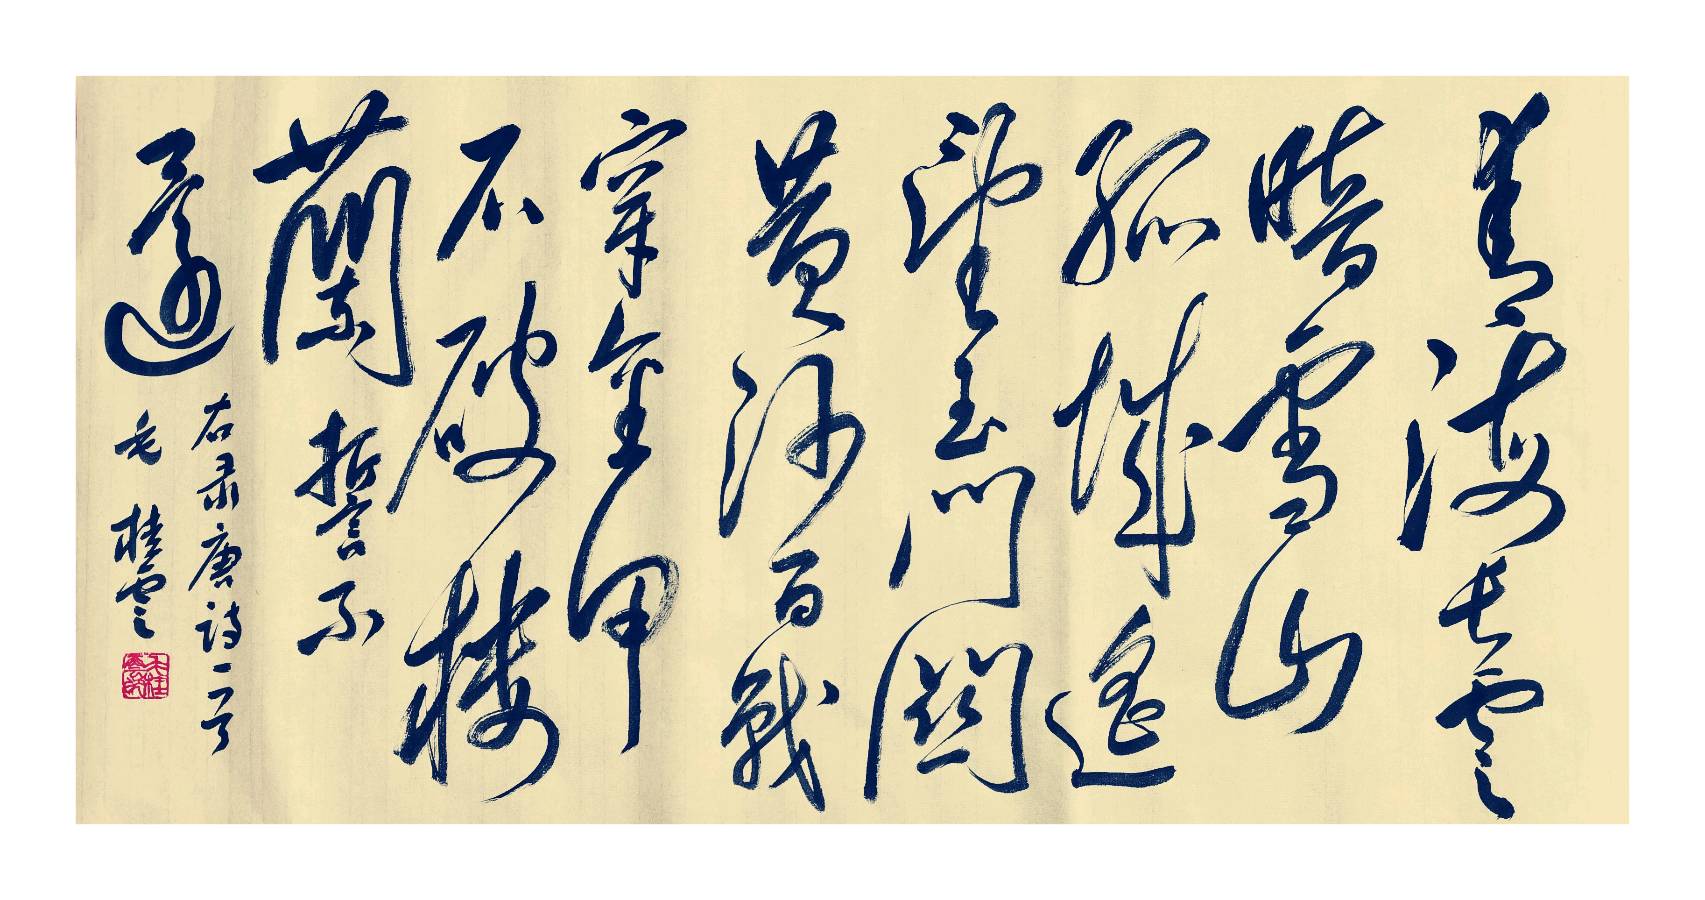 青海长雲
暗雪山
孤城遥
望玉门関
黄沙百戰
穿金甲
不破楼
蘭誓不
還
右录唐诗一首
毛桂雲